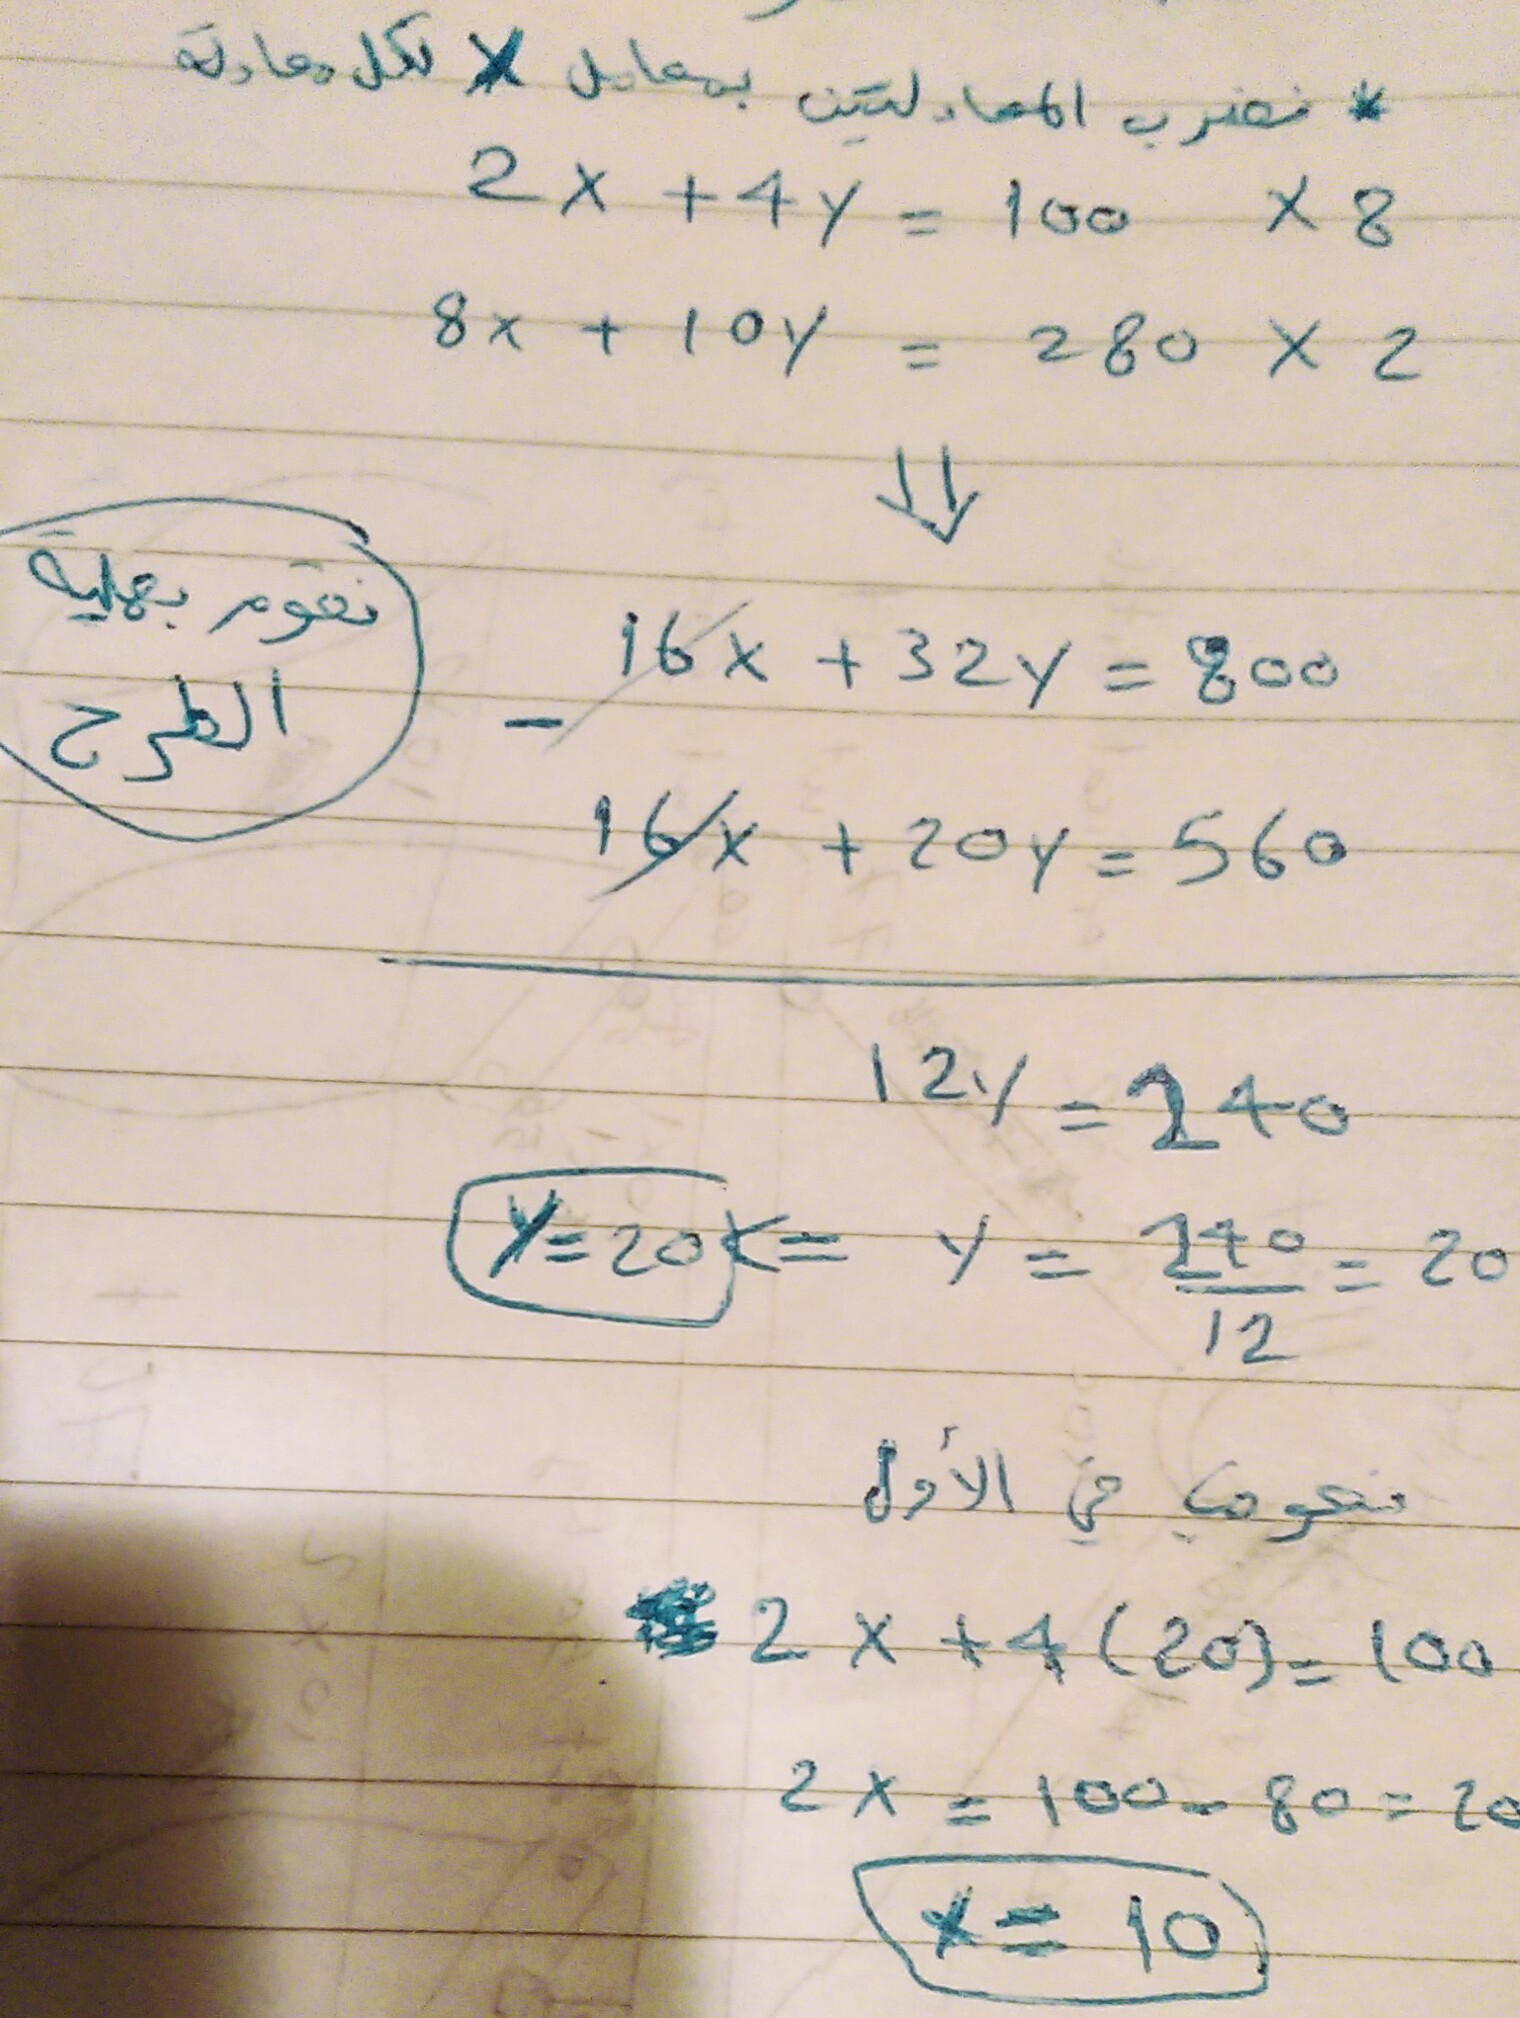 * نضرب المعادلتين بمعامل X لكل معادلة
2x + 4y = 100 × 8
8x + 10y = 280 × 2
⇓
16x + 32y = 800
نقوم بعملية
الطرح
-
16x + 20y = 560
12y = 240
y = 240/12 = 20
y = 20 <=
نعوض في الأول
2x + 4(20) = 100
2x = 100 - 80 = 20
x = 10